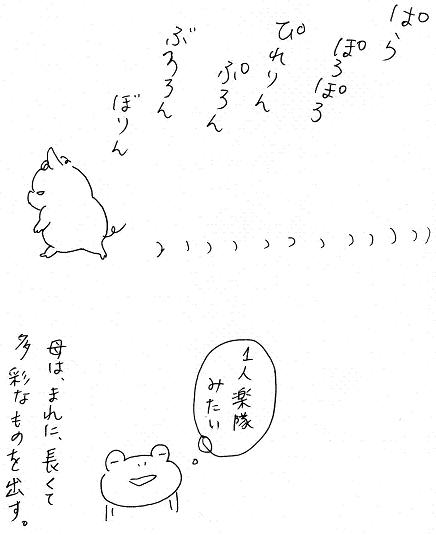 ぱら
ぽろ
ぽろ
ぴれりん
ぷろん
ぶろろん
ぼりん
1人楽隊
みたい
母は、まれに、長くて
多彩なものを出す。